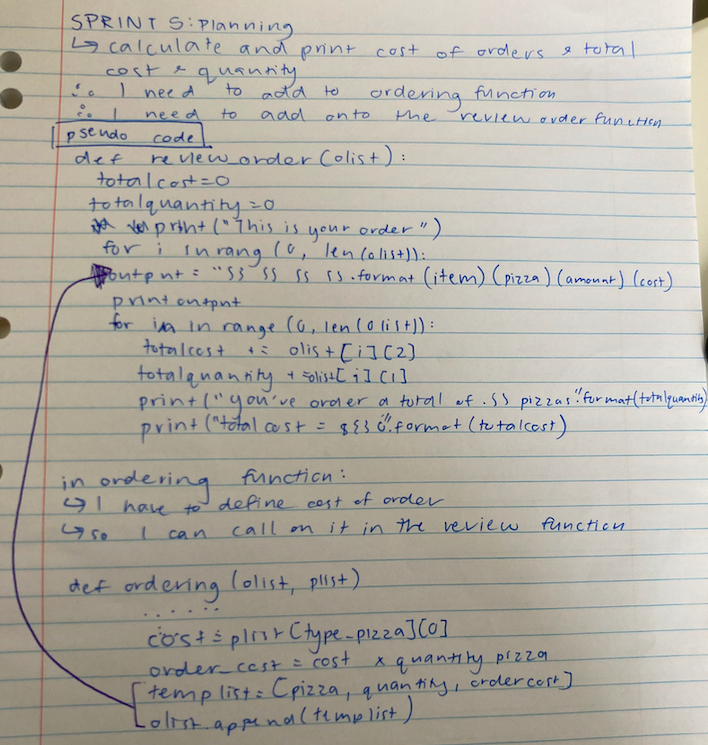 SPRINT 5: Planning
↳ calculate and print cost of orders & total
cost & quantity
∴ I need to add to ordering function
∴ I need to add onto the review order function
pseudo code
def review_order (olist):
total cost=0
totalquantity=0
print ("This is your order")
for i in rang (0, len(olist)):
output = "{} {} {} {}.format (item) (pizza) (amount) (cost)
print output
for in range (0, len(olist)):
totalcost += olist[i][2]
totalquantity +=olist[i][1]
print ("you've order a total of {} pizzas".format(totalquantity)
print ("total cost = ${}".format (totalcost)
in ordering function:
↳ I have to define cost of order
↳ so I can call on it in the review function
def ordering (olist, plist)
. . . . . .
cost = plist [type_pizza][0]
order_cost = cost x quantity pizza
templist = [pizza, quantity, ordercost]
olist.append(templist)